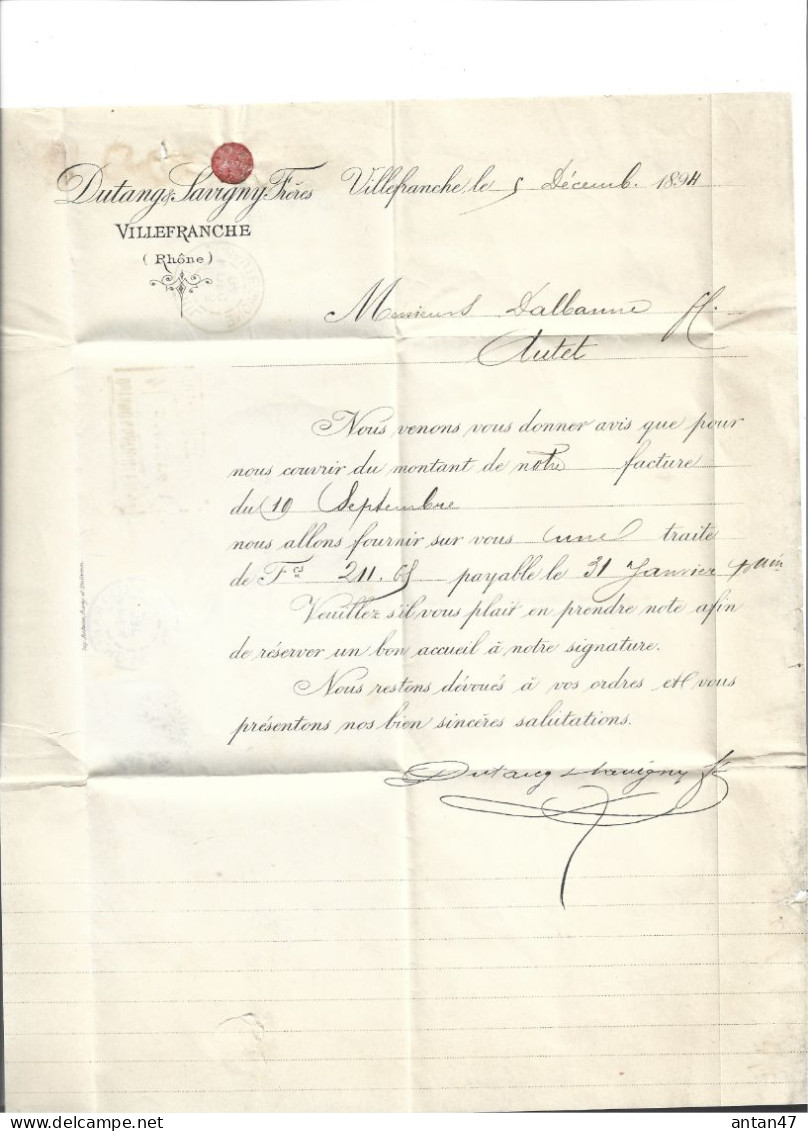 Dutang & Savigny Frères
VILLEFRANCHE
(Rhône)
Villefranche, le 5 Décemb. 1894
Messieurs Dalbanne
Autet
Nous venons vous donner avis que pour
nous couvrir du montant de notre facture
du 19 Septembre
nous allons fournir sur vous une traite
de Fcs 211.65 payable le 31 Janvier
Veuillez s'il vous plait en prendre note afin
de réserver un bon accueil à notre signature.
Nous restons dévoués à vos ordres et vous
présentons nos bien sincères salutations.
Dutang & Savigny f
antan47